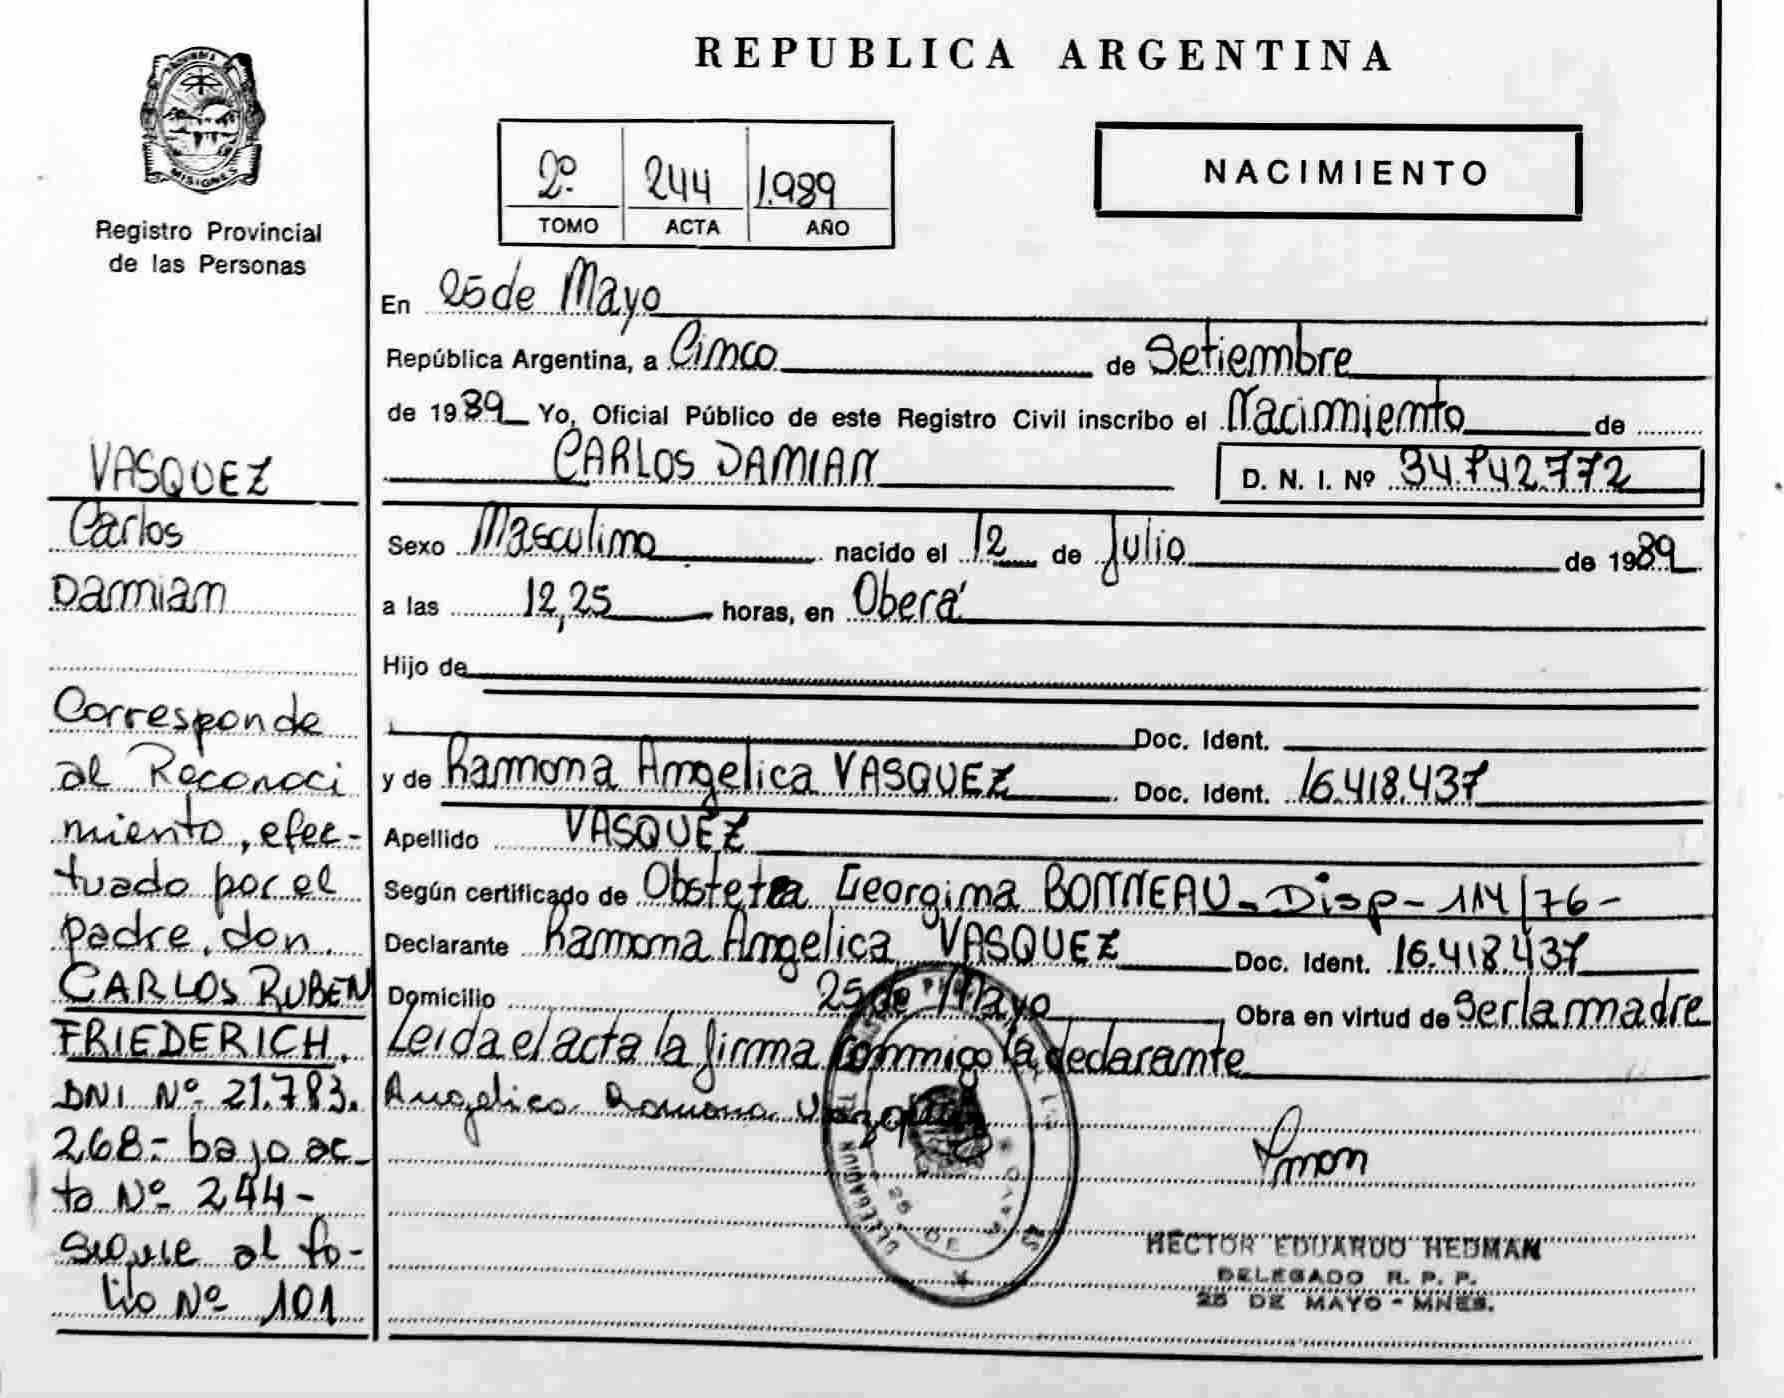 REPUBLICA ARGENTINA
MISIONES
Registro Provincial
de las Personas
2º 244 1.989
TOMO ACTA AÑO
NACIMIENTO
VASQUEZ
Carlos
Damian
Corresponde
al Reconoci
miento, efec-
tuado por el
padre, don.
CARLOS RUBEN
FRIEDERICH.
DNI Nº 21.783.
268.- bajo ac-
ta Nº 244-
sigue al fo-
lio Nº 101
En 25 de Mayo
República Argentina, a Cinco de Setiembre
de 1989 Yo, Oficial Público de este Registro Civil inscribo el Nacimiento de
CARLOS DAMIAN D. N. I. Nº 34.742.772
Sexo Masculino nacido el 12 de Julio de 1989
a las 12,25 horas, en Oberá
Hijo de
Doc. Ident.
y de Ramona Angelica VASQUEZ Doc. Ident. 16.418.437
Apellido VASQUEZ
Según certificado de Obstetra Georgina BONNEAU - Disp - 114/76 -
Declarante Ramona Angelica VASQUEZ Doc. Ident. 16.418.437
Domicilio 25 de Mayo Obra en virtud de Ser la madre
Leida el acta la firma conmigo la declarante
Angelica Ramona Vazquez
DELEGACION 25 DE
HECTOR EDUARDO HEDMAN
DELEGADO R. P. P.
25 DE MAYO - MNES.